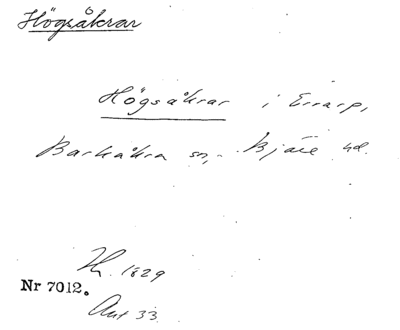 Högsåkrar
Högsåkrar i Errarp,
Barkåkra sn, Bjäre hd.
1829
Nr 7012.
33